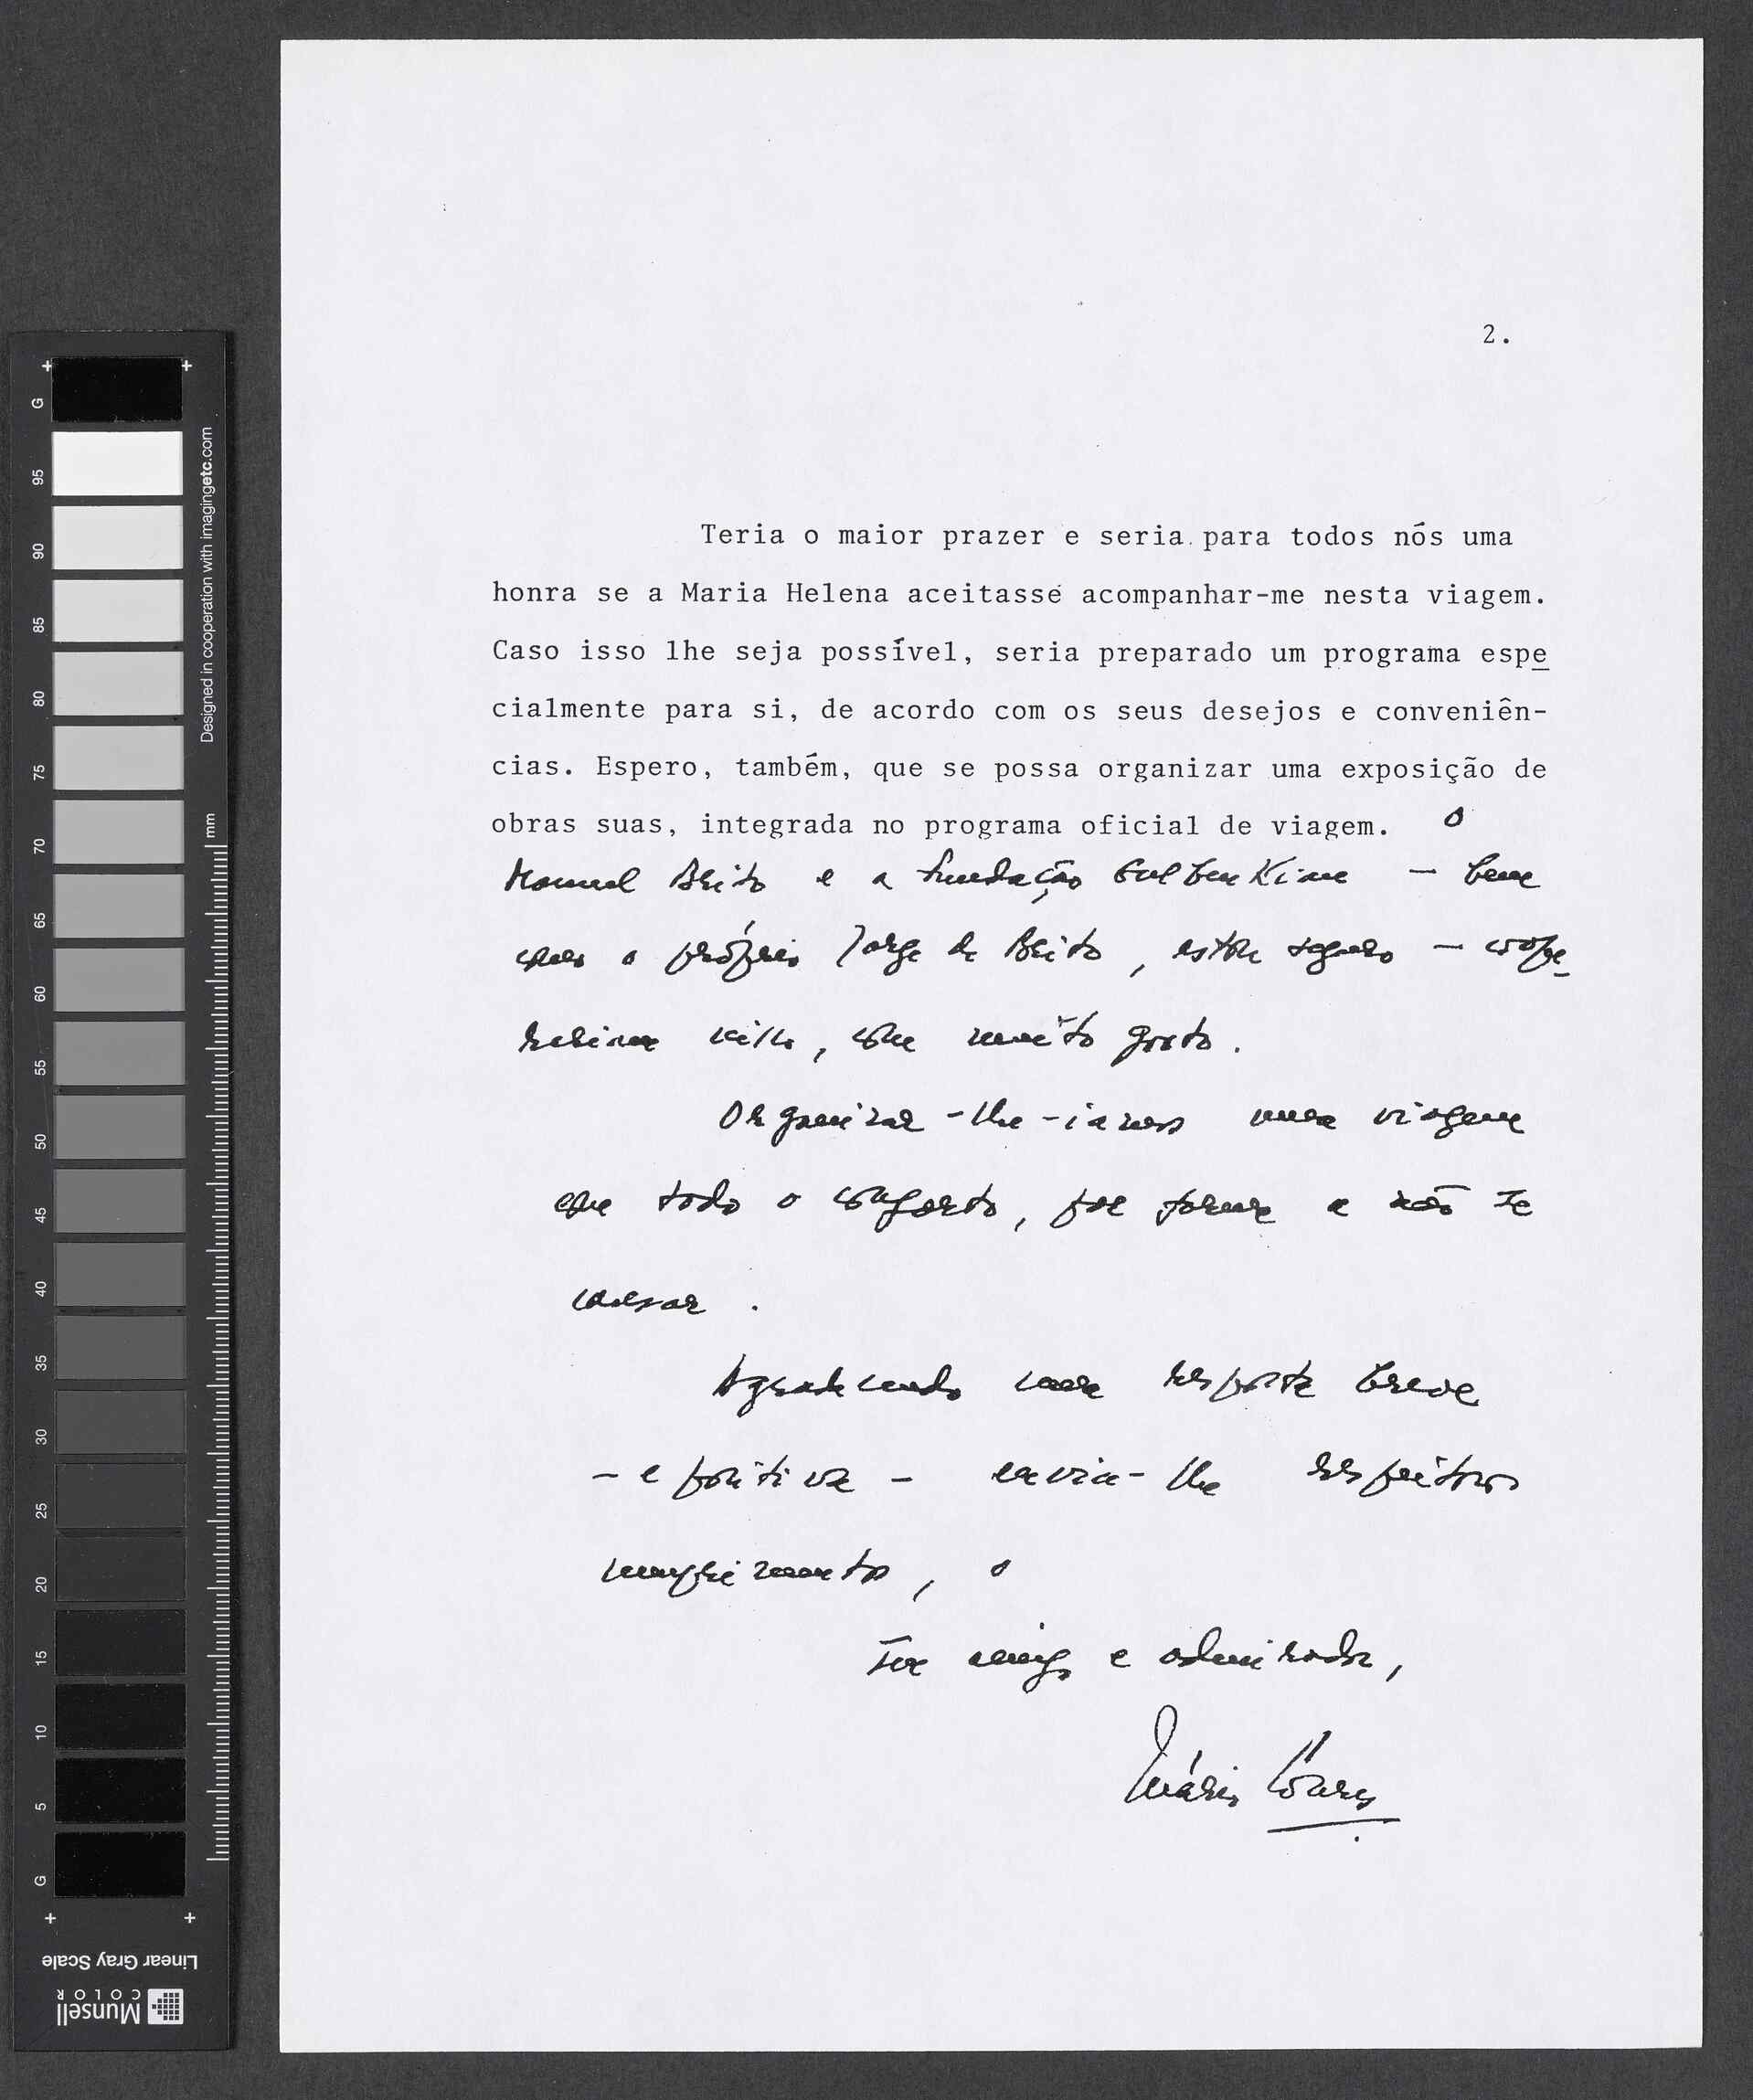 2.
Teria o maior prazer e seria para todos nós uma
honra se a Maria Helena aceitasse acompanhar-me nesta viagem.
Caso isso lhe seja possível, seria preparado um programa espe
cialmente para si, de acordo com os seus desejos e conveniên-
cias. Espero, também, que se possa organizar uma exposição de
obras suas, integrada no programa oficial de viagem. O
Manuel Brito e a Fundação Gulbenkian - bem
como o próprio Jorge de Brito, estou seguro - coope
rariam nisso, com muito gosto.
Organizar-lhe-iamos uma viagem
com todo o conforto, por forma a não se
cansar.
Agradecendo uma resposta breve
- e positiva - envia-lhe respeitosos
cumprimentos, o
seu amigo e admirador,
Mário Soares
G
95
90
85
80
75
70
65
60
55
50
45
40
35
30
25
20
15
10
5
G
Designed in cooperation with imagingetc.com
mm
Linear Gray Scale
Munsell
COLOR